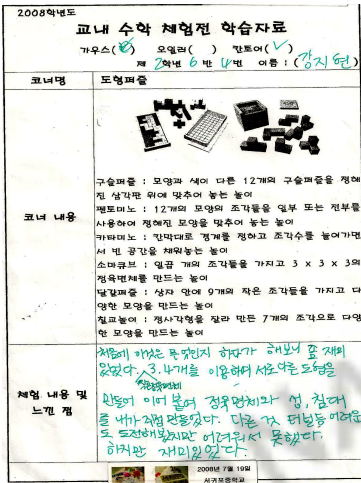 2008학년도
교내 수학 체험전 학습자료
가우스( ) 오일러( ) 칸토어(✓)
제 2학년 6반 4번 이름 : (강지현)
코너명 도형퍼즐
코너 내용
구슬퍼즐 : 모양과 색이 다른 12개의 구슬퍼즐을 정해
진 삼각판 위에 맞추어 놓는 놀이
펜토미노 : 12개의 모양의 조각들을 일부 또는 전부를
사용하여 정해진 모양을 맞추어 놓는 놀이
카타미노 : 칸막대로 경계를 정하고 조각수를 늘어가면
서 빈 공간을 채워놓는 놀이
소마큐브 : 일곱 개의 조각들을 가지고 3 x 3 x 3의
정육면체를 만드는 놀이
달걀퍼즐 : 상자 안에 9개의 작은 조각들을 가지고 다
양한 모양을 만드는 놀이
칠교놀이 : 정사각형을 잘라 만든 7개의 조각으로 다양
한 모양을 만드는 놀이
체험 내용 및
느낀 점
처음에 이것은 뭔지 하다가 해보니 재미
있었다. 3,4개를 이용하여 서로 다른 도형을
만들어 이어 붙여 정육면체와 성, 침대
를 내가 직접 만들었다. 다른 것 더 어려운
도 도전해봤지만 어려워서 못했다.
하지만 재미있었다.
2008년 7월 19일
서귀포중학교